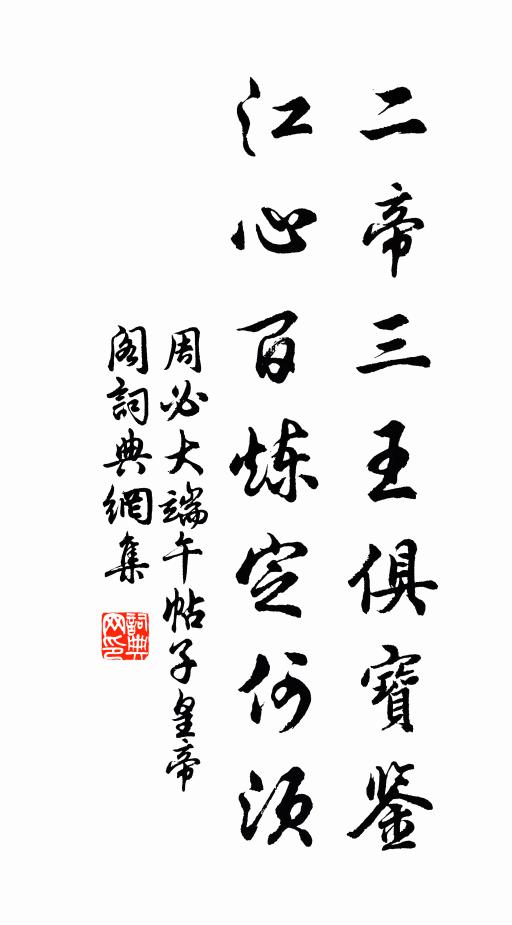 二帝三王俱寶鑒
江心百炼定何须
周必大端午帖子皇帝
阁詞典網集
詞典
网印